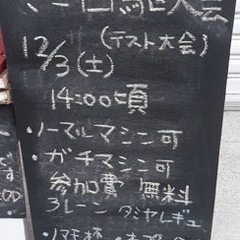 ミニ四駆大会
(テスト大会)
12/3(土)
14:00頃
・ノーマルマシン可
・ガチマシン可
参加費 無料
3レーン タミヤレギュ